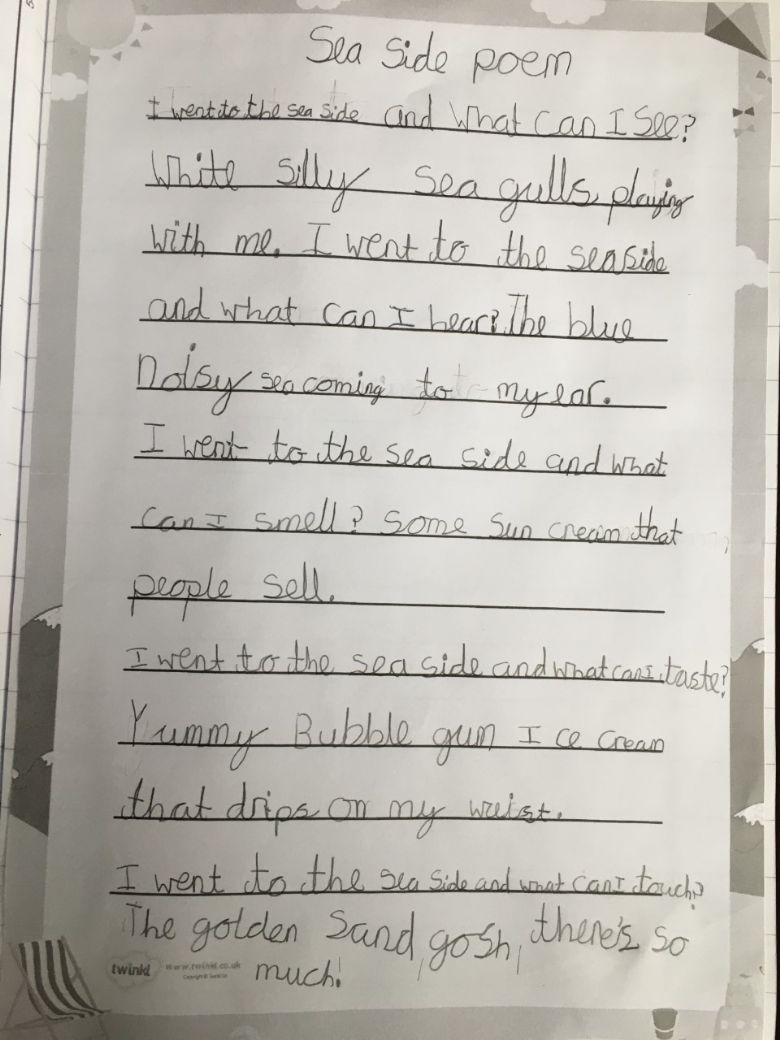 Sea Side poem
I went to the sea side and what can I see?
White silly sea gulls, playing
with me. I went to the seaside
and what can I hear? The blue
noisy sea coming to my ear.
I went to the sea side and what
can I smell? Some Sun cream that
people sell.
I went to the sea side and what can I taste?
Yummy Bubble gum I ce cream
that drips on my waist.
I went to the sea side and what can I touch?
The golden sand, gosh, there's so
much!
twinkl www.twinkl.co.uk